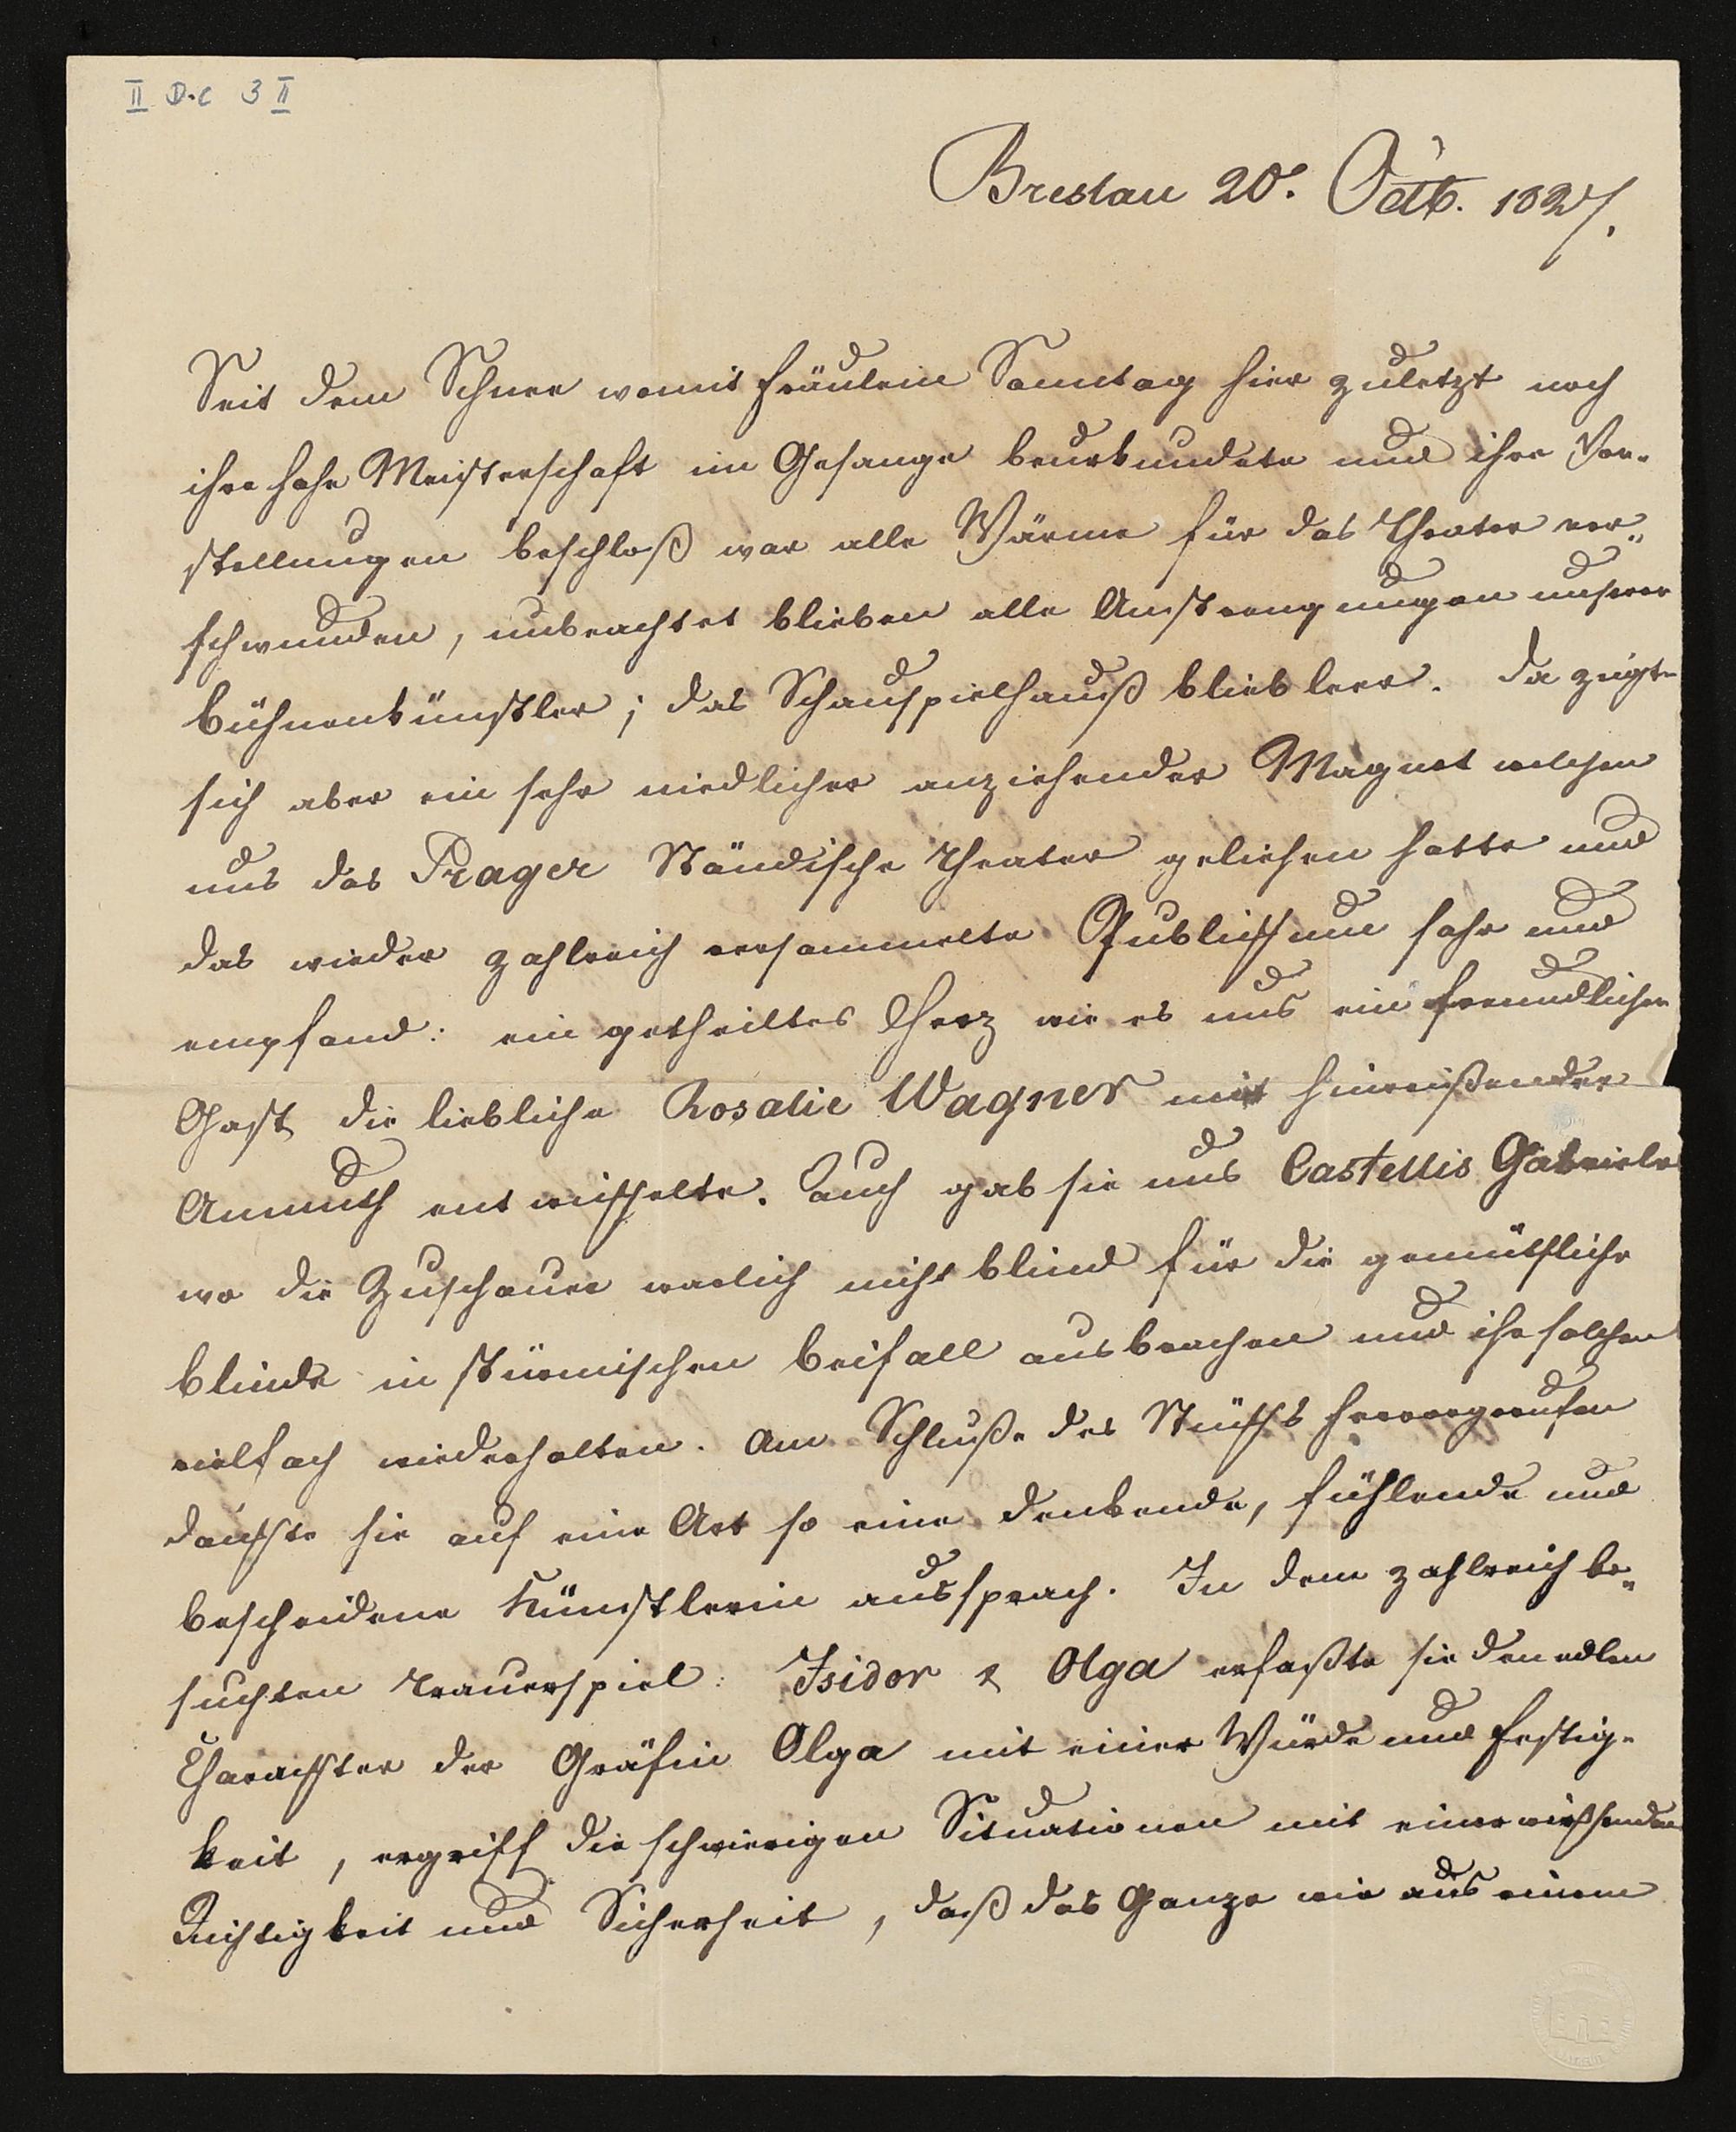 II D.c 3 II
Breslau 20. Octb. 1827.
Seit dem Schnee womit Fräulein Sonntag hier zuletzt noch
ihre hohe Meisterschaft im Gesange beurkundete und ihre Vor-
stellungen beschloß war alle Wärme für das Theater ver„
schwunden, unbeachtet blieben alle Anstrengungen unserer
Bühnenkünstler; das Schauspielhauß blieb leer. Da zeigte
sich aber ein sehr niedlicher anziehender Magnet welchen
uns das Prager Ständische Theater geliehen hatte und
das wieder zahlreich versammelte Publickum sahe und
empfand: ein getheiltes Herz wie es uns ein freundlicher
Gast die liebliche Rosalie Wagner mit hinreißender
Anmuth entwickelte. Auch gab sie uns Castellis Gabriele
wo die Zuschauer warlich nicht blind für die gemüthliche
blinde in stürmischen Beifall ausbrachen und ihr solchen
vielfach wiederholten. Am Schluße des Stücks hervorgerufen
danckte sie auf eine Art so eine denkende, fühlende und
bescheidene Künstlerin aussprach. In dem zahlreich be„
suchten Trauerspiel: Isidor & Olga erfaßte sie den edlen
Charackter der Gräfin Olga mit einer Würde und Festig-
keit, ergriff die schwierigen Situationen mit einer
Richtigkeit und Sicherheit, daß das Ganze wie aus einem